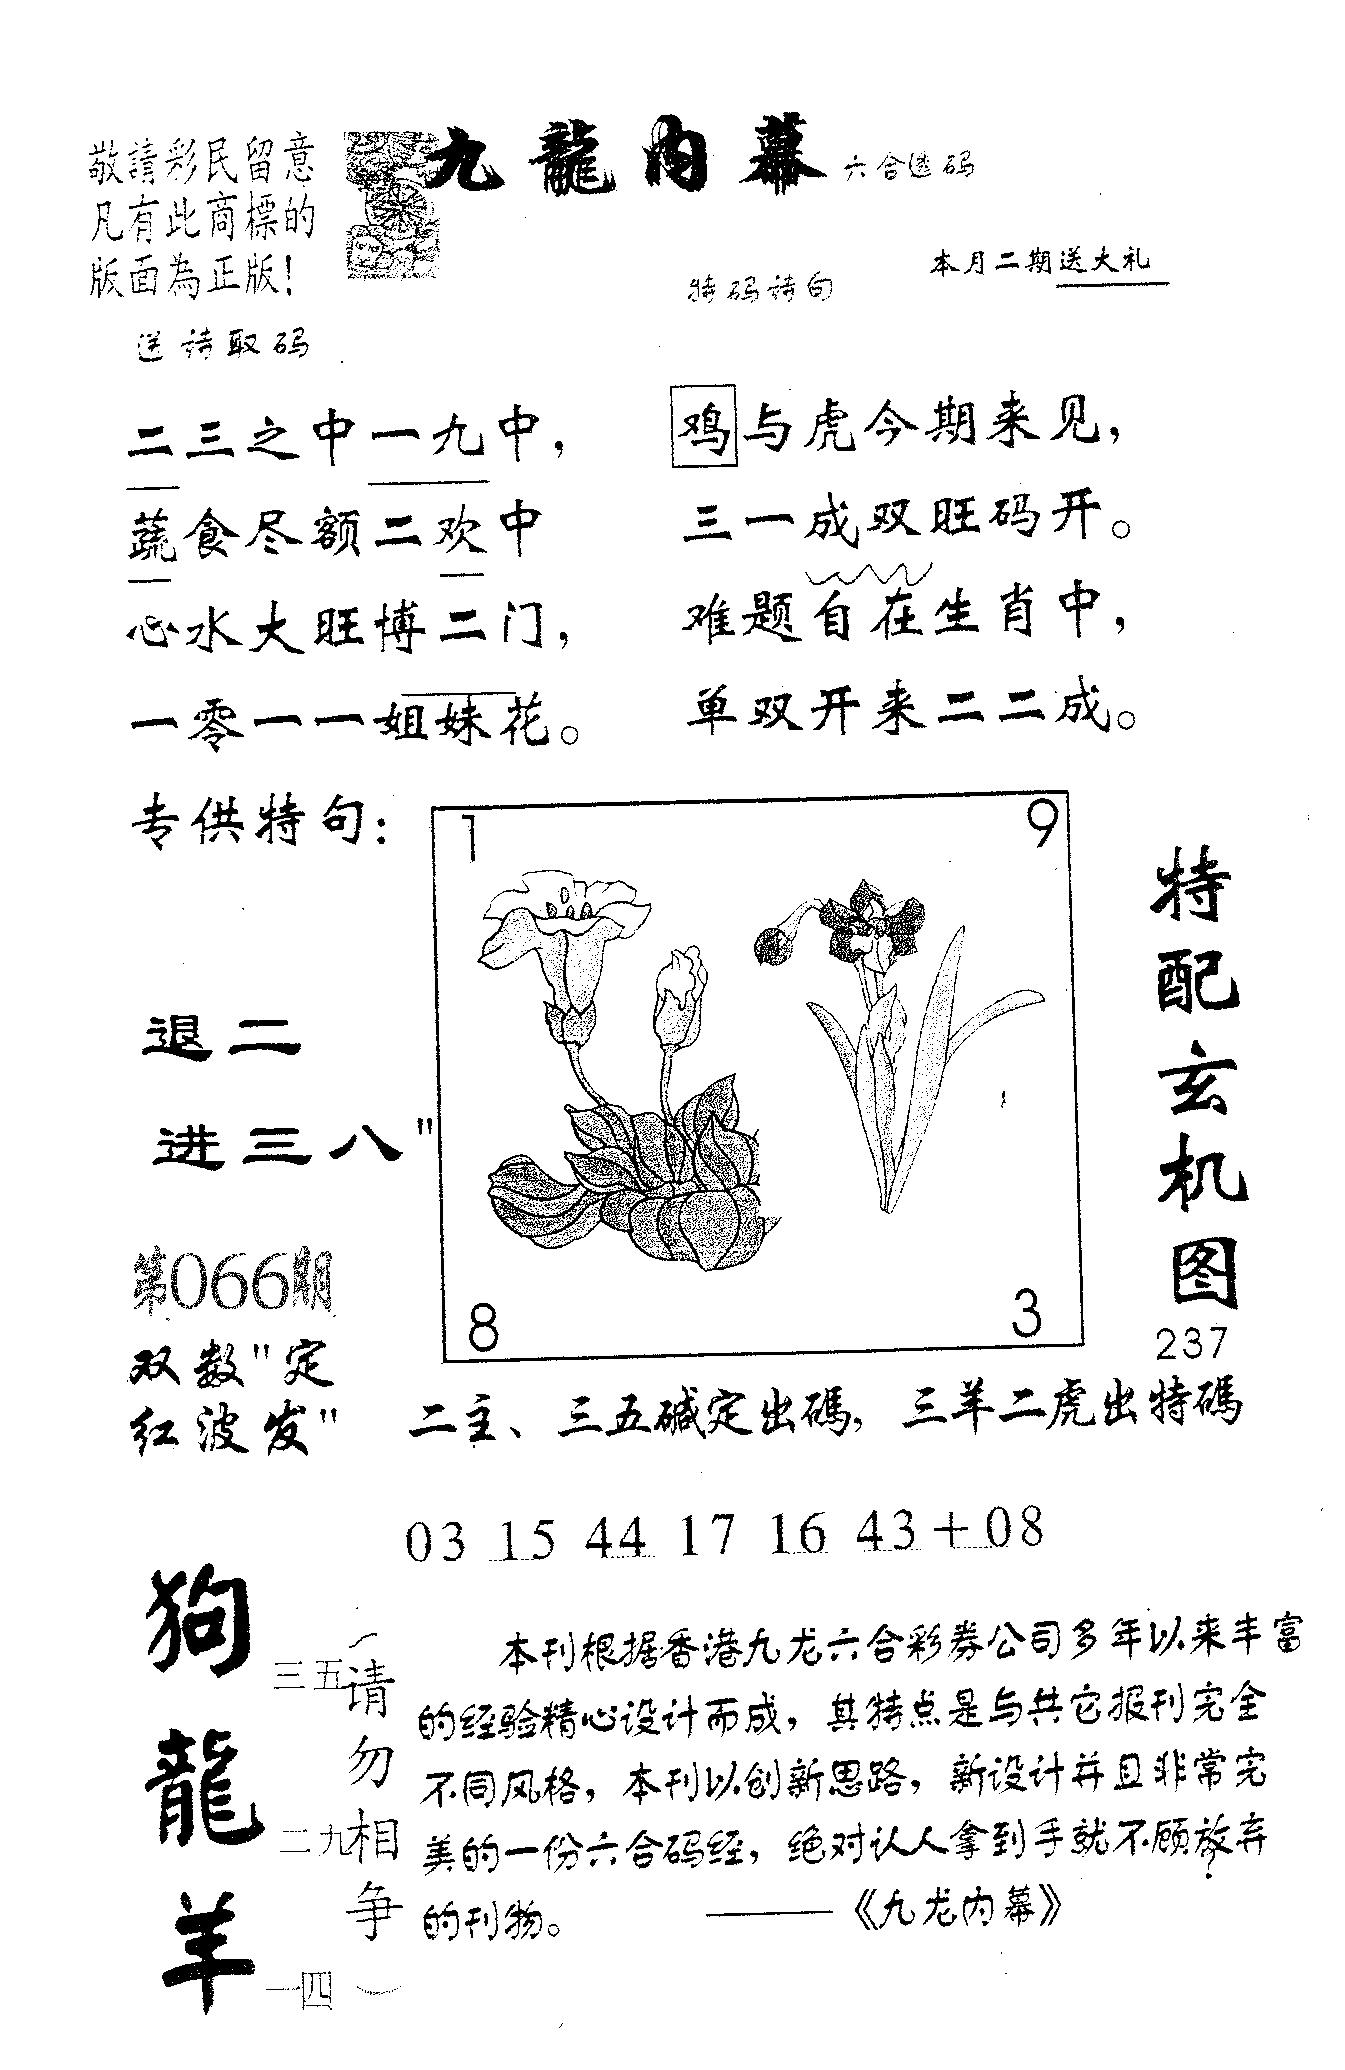 敬請彩民留意
凡有此商標的
版面為正版！
九龍内幕
六合透码
本月二期送大礼
特码诗句
送诗取码
二三之中一九中，
蔬食尽额二欢中
心水大旺博二门，
一零一一姐妹花。
鸡与虎今期来见，
三一成双旺码开。
难题自在生肖中，
单双开来二二成。
专供特句：
退二
进三八"
第066期
双数"定
红波发"
1
9
8
3
特配玄机图
237
二主、三五碱定出碼，三羊二虎出特碼
03 15 44 17 16 43＋08
狗龍羊
三五
二九
一四
（请勿相争）
本刊根据香港九龙六合彩券公司多年以来丰富
的经验精心设计而成，其特点是与共它报刊完全
不同风格，本刊以创新思路，新设计并且非常完
美的一份六合码经，绝对认人拿到手就不顾放弃
的刊物。 ——《九龙内幕》